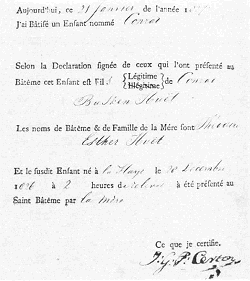 Aujourd'hui, ce 21 Janvier de l'année 18
J'ai Bâtisé un Enfant nommé Conrad
Selon la Declaration signée de ceux qui l'ont présenté au
Bâtême cet Enfant est Fil s {Légitime
Illégitime} de Conrad
Busken Huët
Les noms de Bâtême & de Famille de la Mére sont
Esther Huët
Et le susdit Enfant né à la Haye le 28 Decembre
1826 à 2 heures de a été présenté au
Saint Bâtême par la Mère
Ce que je certifie.